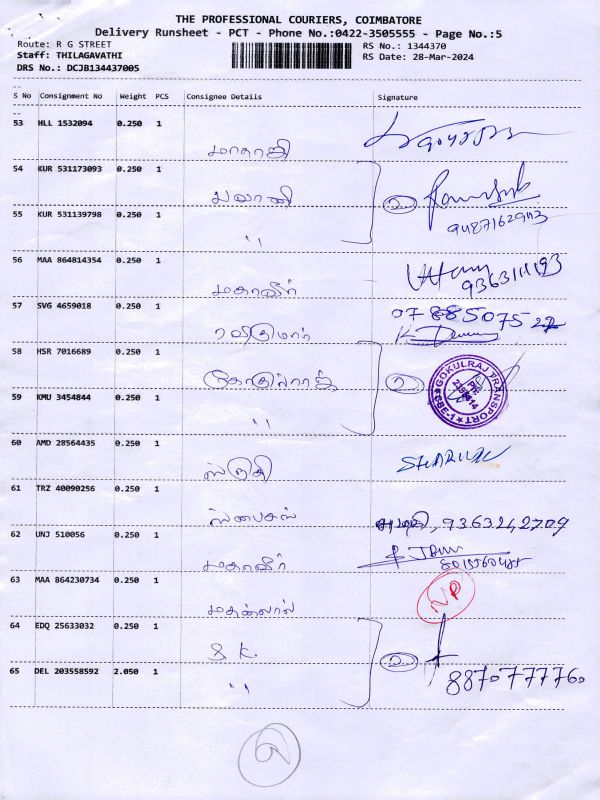 THE PROFESSIONAL COURIERS, COIMBATORE
Delivery Runsheet - PCT - Phone No.:0422-3505555 - Page No.:5
Route: R G STREET
RS No.: 1344370
Staff: THILAGAVATHI
RS Date: 28-Mar-2024
DRS No.: DCJB134437005
S No Consignment No Weight PCS Consignee Details Signature
53 HLL 1532094 0.250 1
மாதாஜி
54 KUR 531173093 0.250 1
பவானி
2
55 KUR 531139798 0.250 1
9487162943
"
56 MAA 864814354 0.250 1
மகாவீர்
9363111193
57 SVG 4659018 0.250 1
ரவிகுமார்
58 HSR 7016689 0.250 1
கோகுல்ராஜ்
2
GOKULRAJ TRANSPORT
59 KMU 3454844 0.250 1
"
60 AMD 28564435 0.250 1
ஸ்ருதி
61 TRZ 40090256 0.250 1
ஸ்பைசஸ்
9363242709
62 UNJ 510056 0.250 1
மகாவீர்
63 MAA 864230734 0.250 1
மதன்லால்
NP
64 EDQ 25633032 0.250 1
S K.
2
65 DEL 203558592 2.050 1
"
8870777760